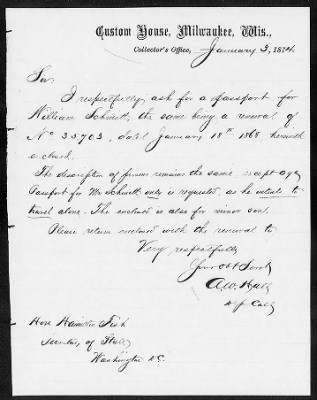 Custom House, Milwaukee, Wis.,
Collector's Office, January 3, 1874.
Sir
I respectfully ask for a Passport for
William Schmitt, the same being a renewal of
No 33703, dated January 18th 1868 herewith
enclosed.
The description of person remains the same except age
Passport for Mr Schmitt only is requested, as he intends to
travel alone. The enclosed is also for minor son.
Please return enclosed with the renewal to
Very respectfully
Your Obt Servt
A.W. Hall
Dep Coll
Hon Hamilton Fish
Secretary of State
Washington D.C.